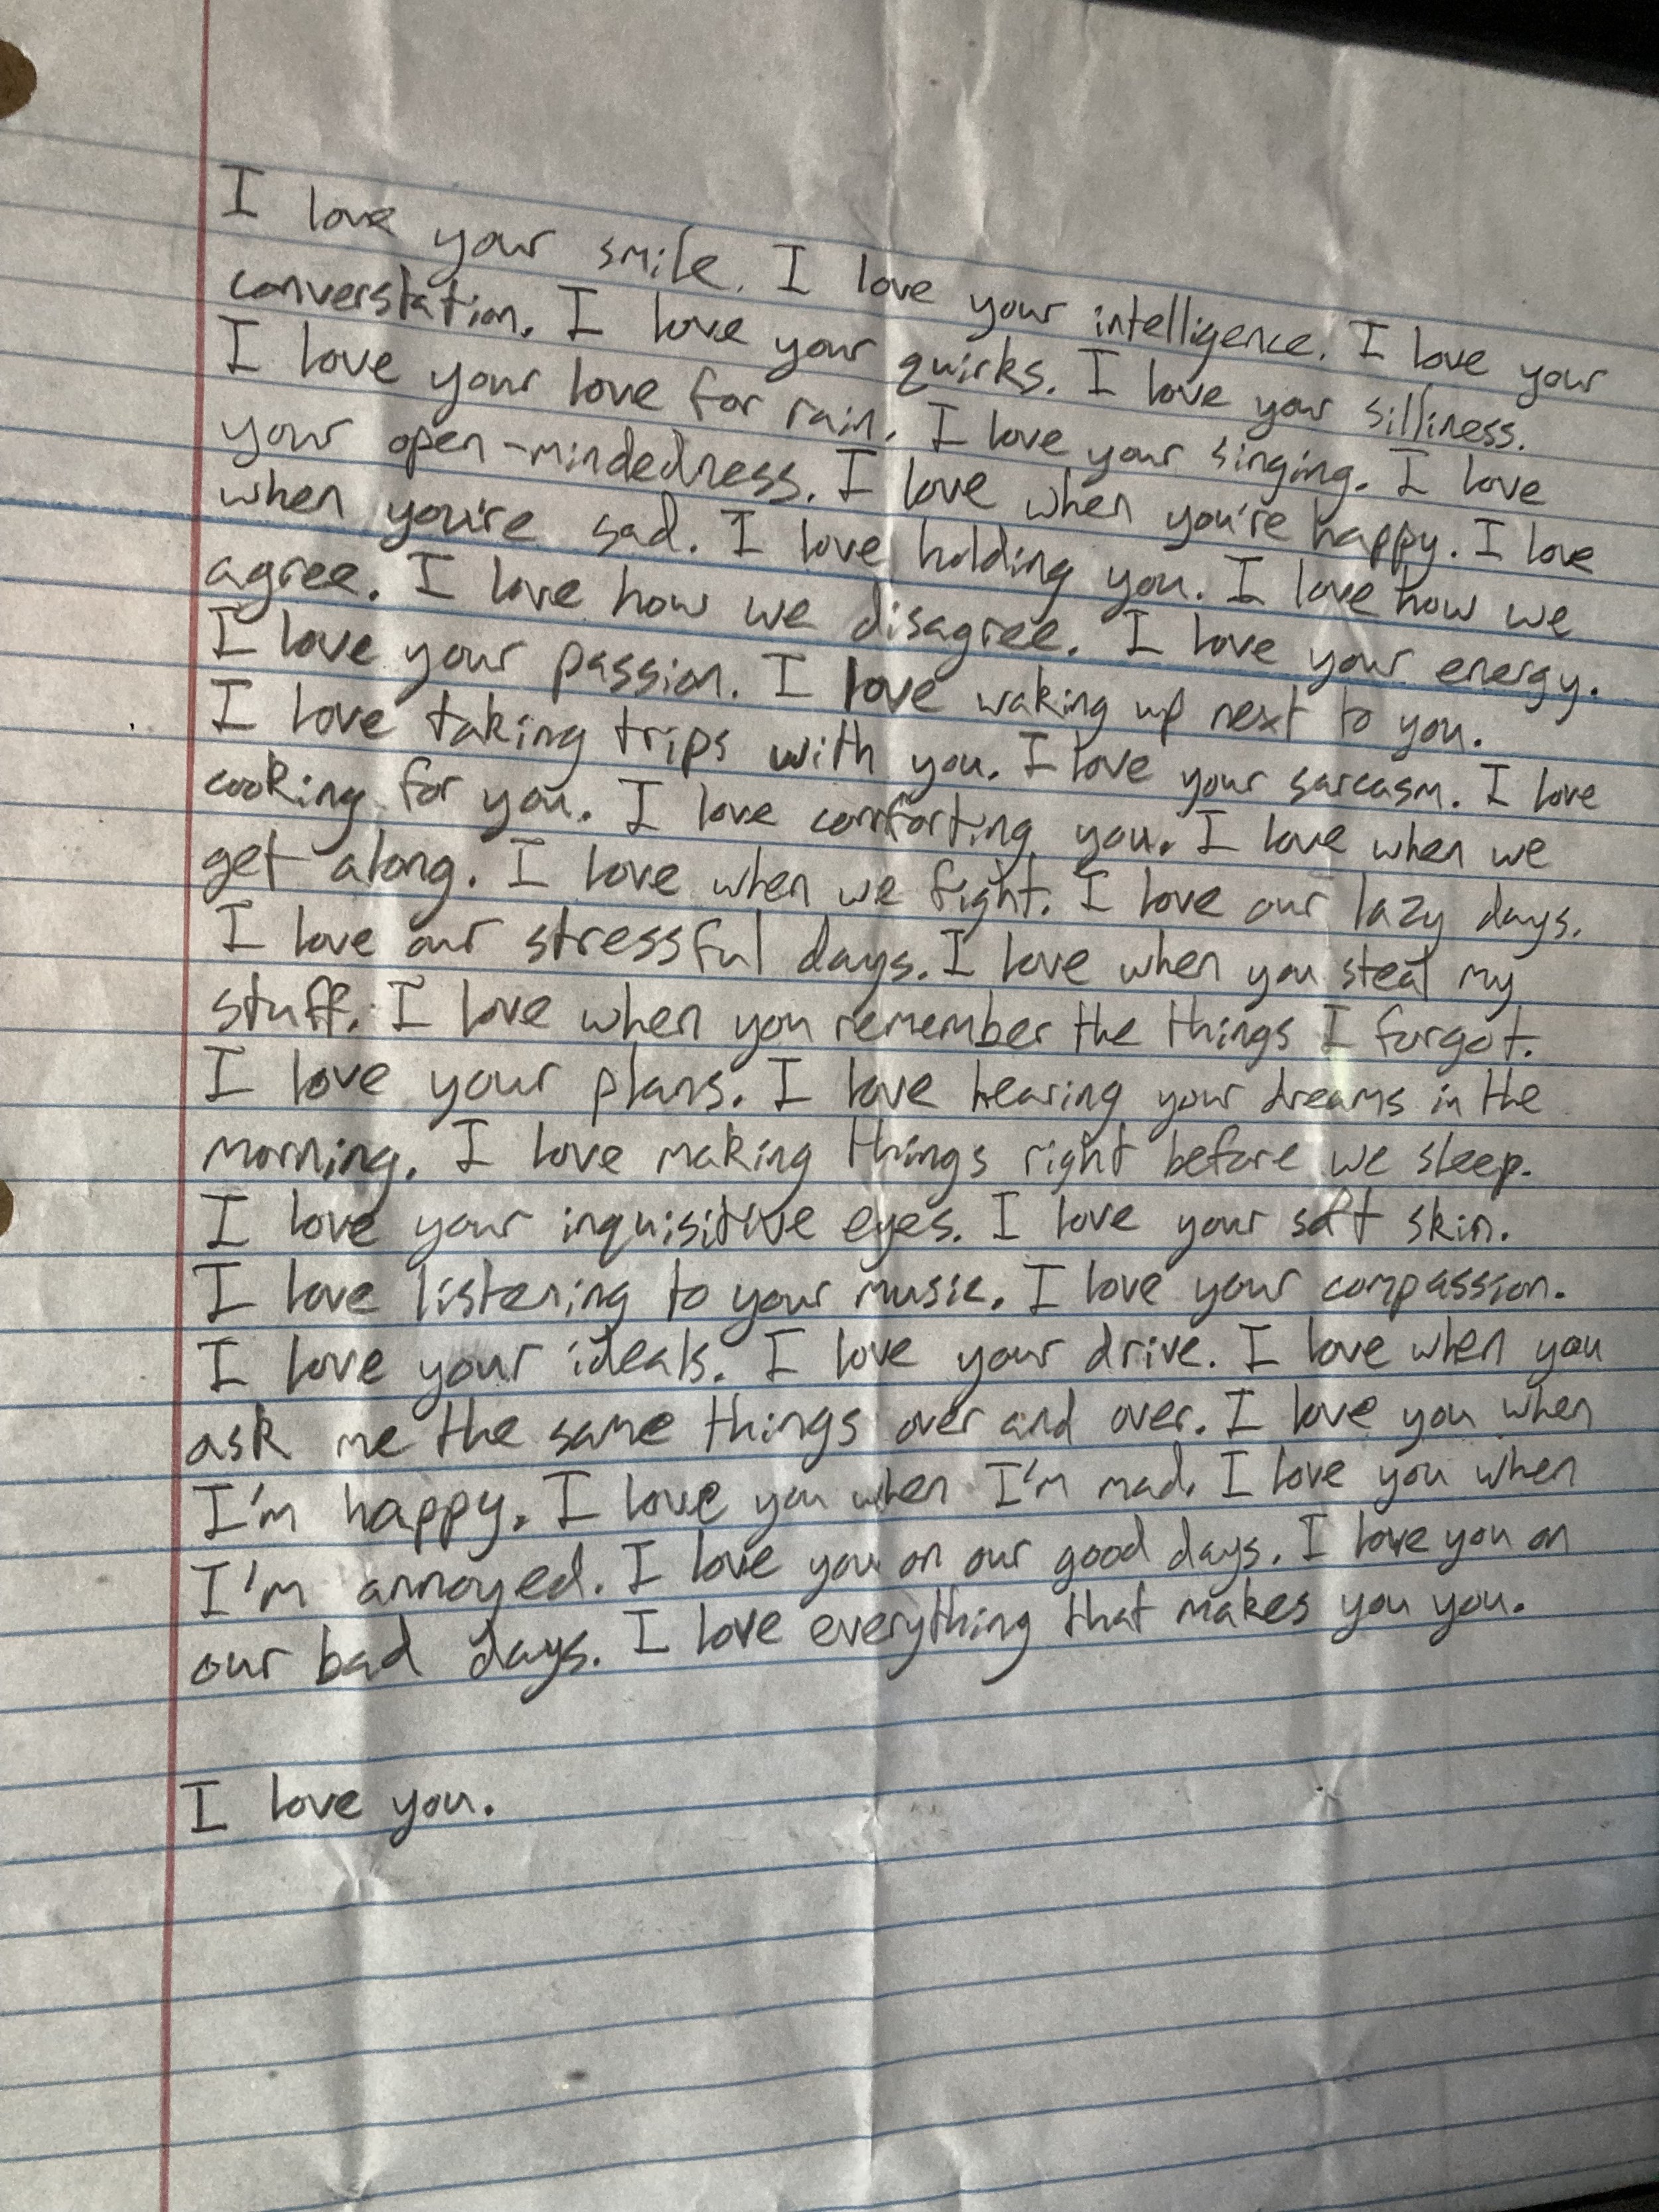 I love your smile. I love your intelligence. I love your
converstation. I love your quirks. I love your silliness.
I love your love for rain. I love your singing. I love
your open-mindedness. I love when you're happy. I love
when you're sad. I love holding you. I love how we
agree. I love how we disagree. I love your energy.
I love your passion. I love waking up next to you.
I love taking trips with you. I love your sarcasm. I love
cooking for you. I love comforting you. I love when we
get along. I love when we fight. I love our lazy days.
I love our stressful days. I love when you steal my
stuff. I love when you remember the things I forgot.
I love your plans. I love hearing your dreams in the
morning. I love making things right before we sleep.
I love your inquisitive eyes. I love your soft skin.
I love listening to your music. I love your compassion.
I love your ideals. I love your drive. I love when you
ask me the same things over and over. I love you when
I'm happy. I love you when I'm mad. I love you when
I'm annoyed. I love you on our good days. I love you on
our bad days. I love everything that makes you you.
I love you.